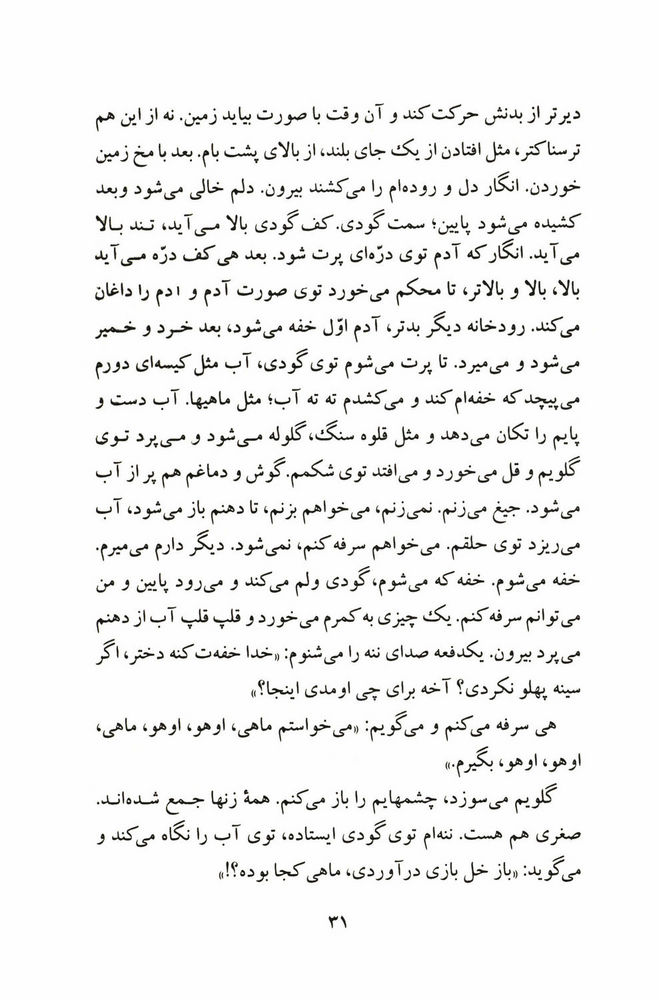 دیرتر از بدنش حرکت کند و آن وقت با صورت بیاید زمین. نه از این هم
ترسناکتر، مثل افتادن از یک جای بلند، از بالای پشت بام. بعد با مخ زمین
خوردن. انگار دل و روده‌ام را می‌کشند بیرون. دلم خالی می‌شود وبعد
کشیده می‌شود پایین؛ سمت گودی. کف گودی بالا می‌آید، تند بالا
می‌آید. انگار که آدم توی درّه‌ای پرت شود. بعد هی کف درّه می‌آید
بالا، بالا و بالاتر، تا محکم می‌خورد توی صورت آدم و ادم را داغان
می‌کند. رودخانه دیگر بدتر، آدم اوّل خفه می‌شود، بعد خرد و خمیر
می‌شود و می‌میرد. تا پرت می‌شوم توی گودی، آب مثل کیسه‌ای دورم
می‌پیچد که خفه‌ام کند و می‌کشدم ته ته آب؛ مثل ماهیها. آب دست و
پایم را تکان می‌دهد و مثل قلوه سنگ، گلوله می‌شود و می‌پرد توی
گلویم و قل می‌خورد و می‌افتد توی شکمم. گوش و دماغم هم پر از آب
می‌شود. جیغ می‌زنم. نمی‌زنم، می‌خواهم بزنم، تا دهنم باز می‌شود، آب
می‌ریزد توی حلقم. می‌خواهم سرفه کنم، نمی‌شود. دیگر دارم می‌میرم.
خفه می‌شوم. خفه که می‌شوم، گودی ولم می‌کند و می‌رود پایین و من
می‌توانم سرفه کنم. یک چیزی به کمرم می‌خورد و قلپ قلپ آب از دهنم
می‌پرد بیرون. یکدفعه صدای ننه را می‌شنوم: «خدا خفه‌ت کنه دختر، اگر
سینه پهلو نکردی؟ آخه برای چی اومدی اینجا؟»
هی سرفه می‌کنم و می‌گویم: «می‌خواستم ماهی، اوهو، اوهو، ماهی،
اوهو، اوهو، بگیرم.»
گلویم می‌سوزد، چشمهایم را باز می‌کنم. همهٔ زنها جمع شده‌اند.
صغری هم هست. ننه‌ام توی گودی ایستاده، توی آب را نگاه می‌کند و
می‌گوید: «باز خل بازی درآوردی، ماهی کجا بوده؟!»
۳۱